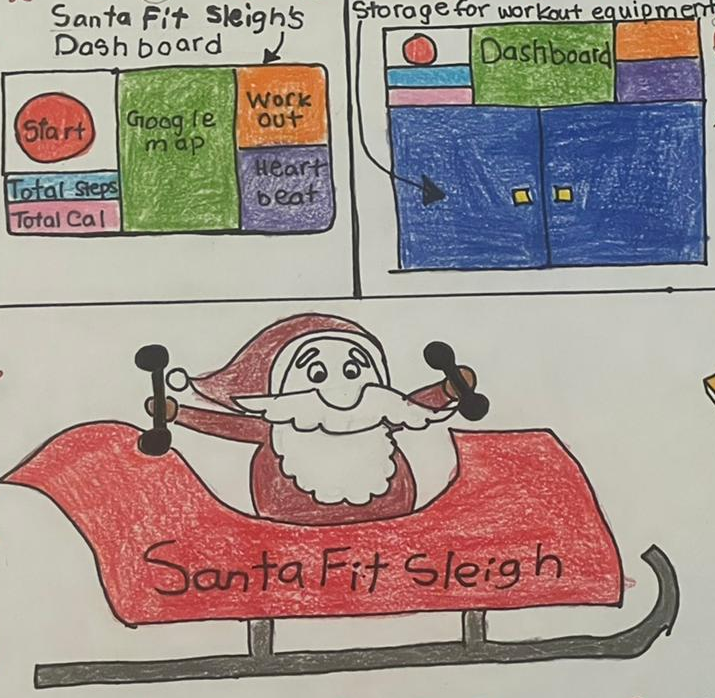 Santa Fit Sleigh's
Dashboard
Start
Total Steps
Total Cal
Google
map
Work
out
Heart
beat
Storage for workout equipment
Dashboard
Santa Fit Sleigh